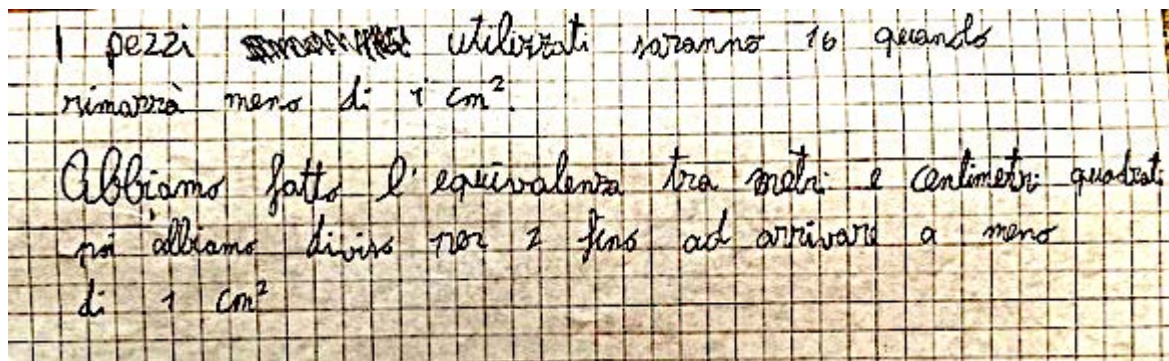 I pezzi utilizzati saranno 16 quando
rimarrà meno di 1 cm².
Abbiamo fatto l'equivalenza tra metri e centimetri quadrati
poi abbiamo diviso per 2 fino ad arrivare a meno
di 1 cm²